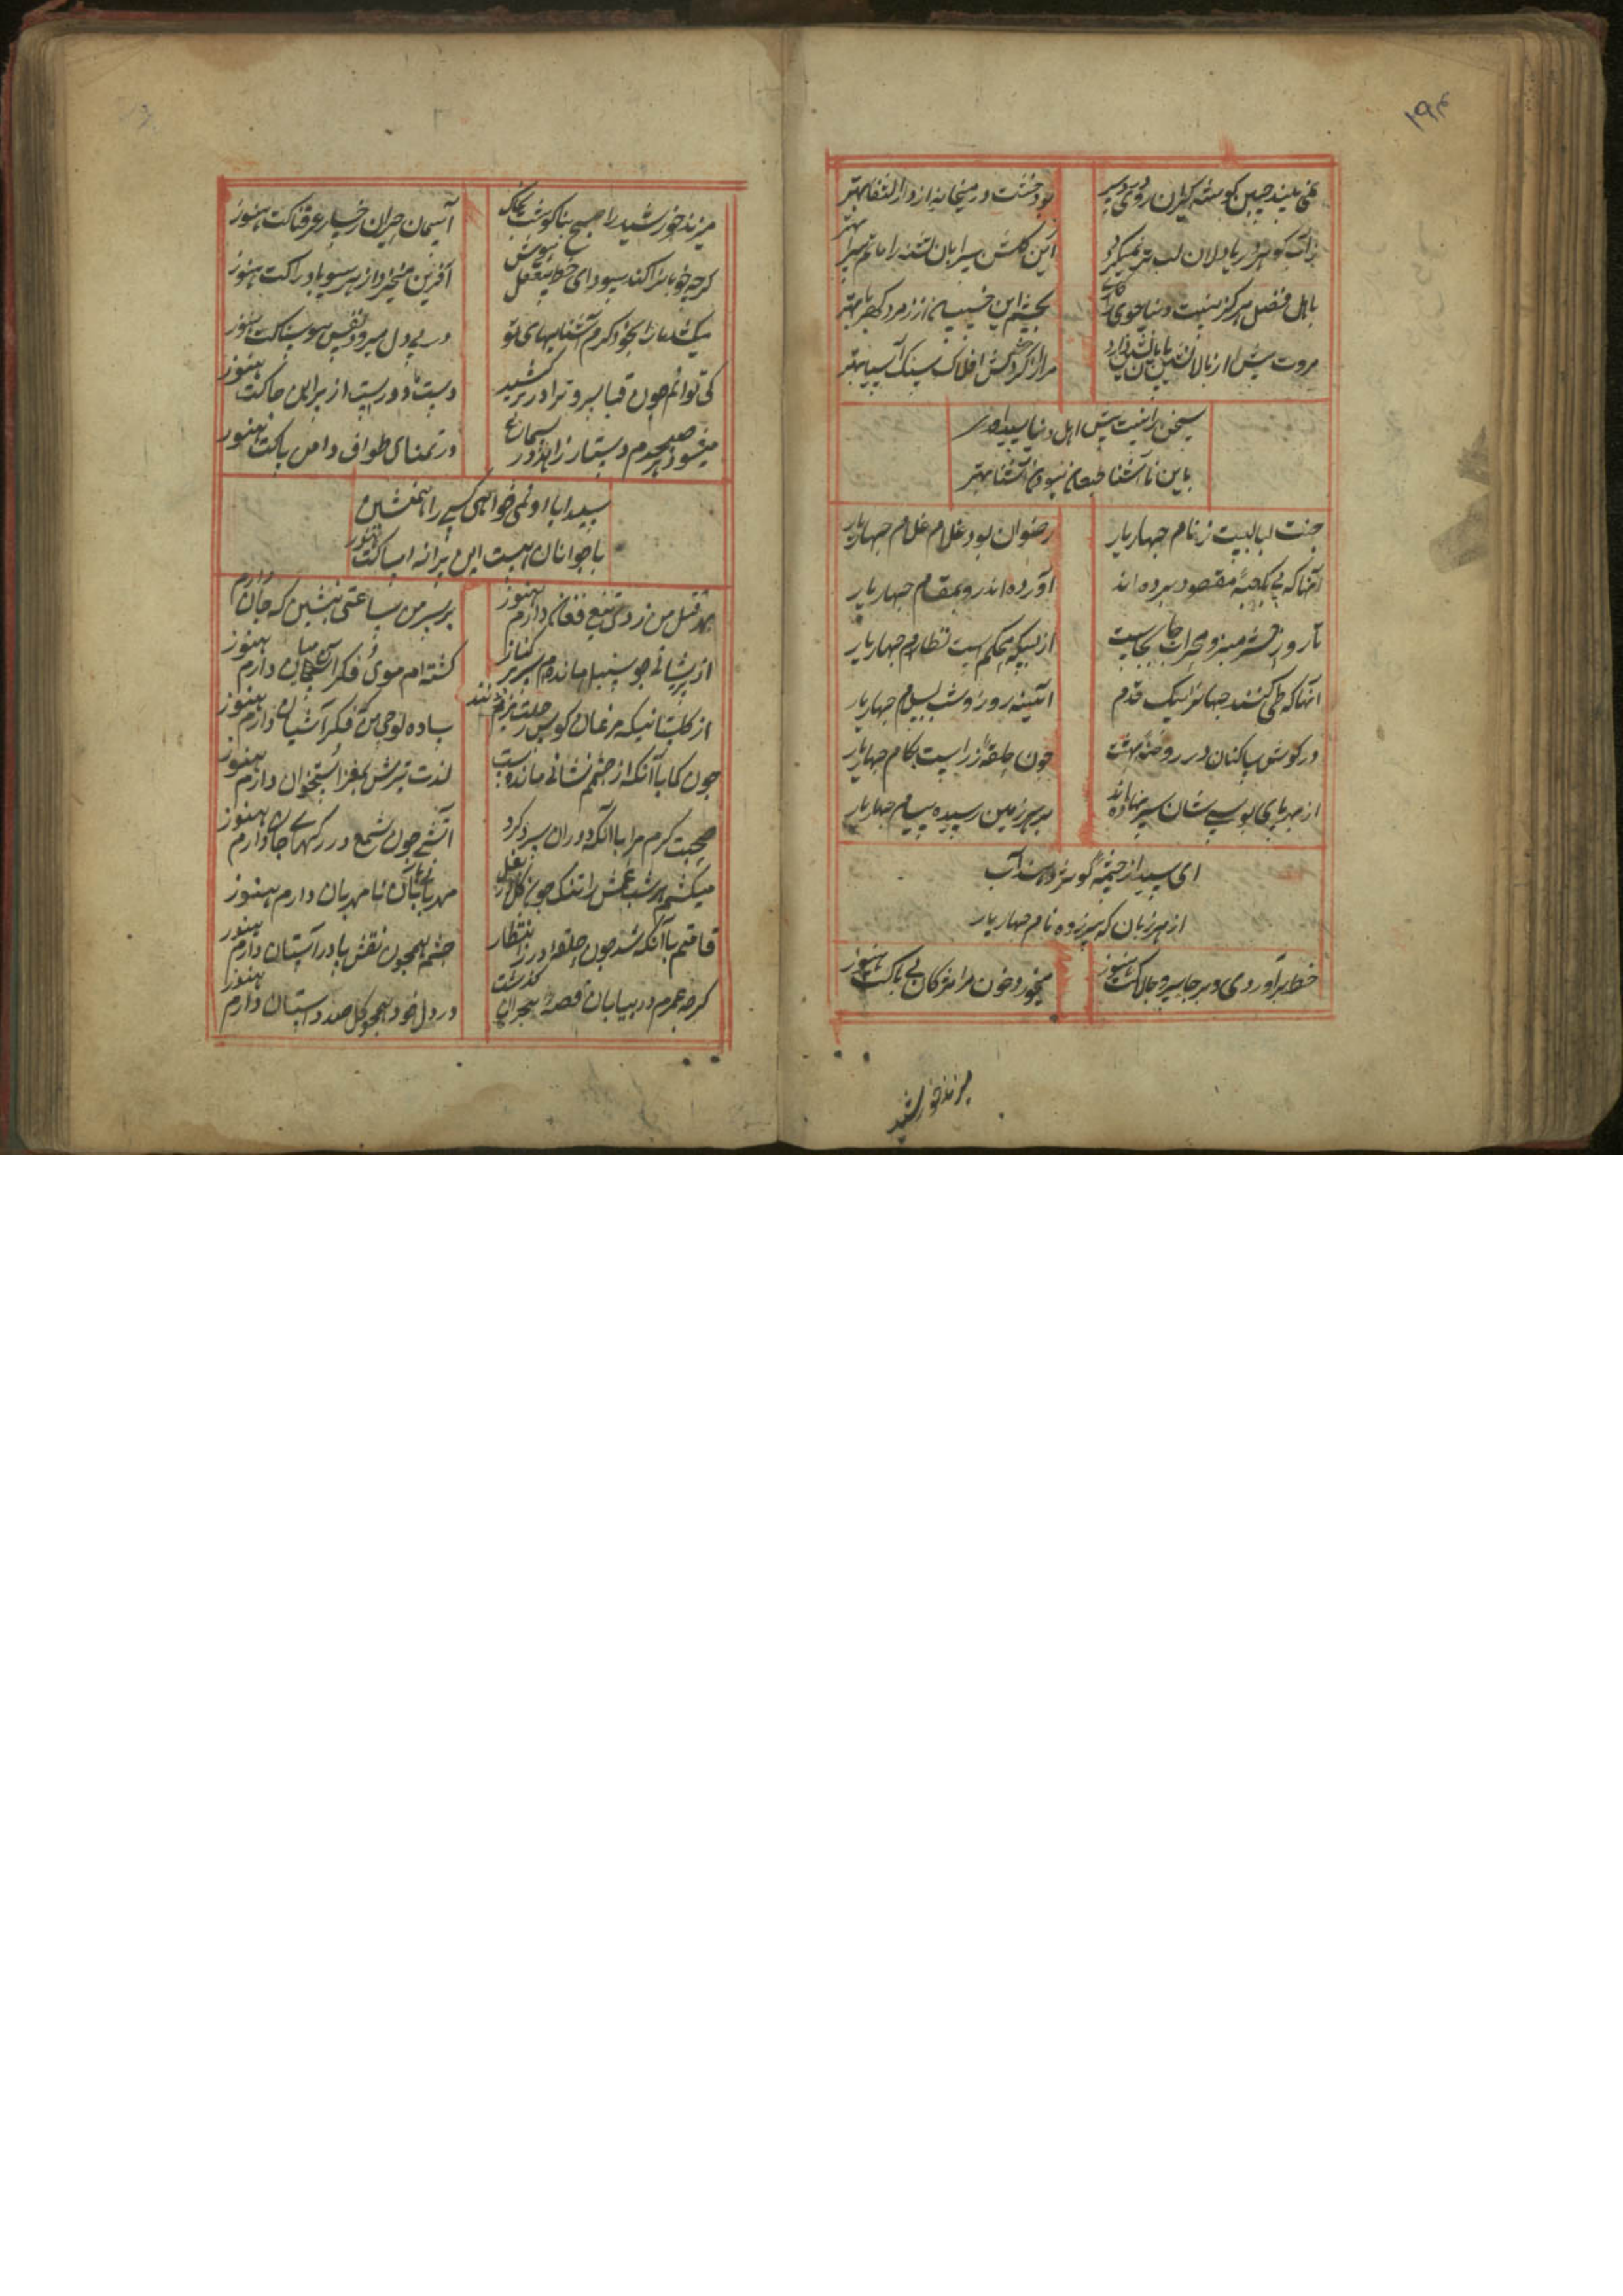 ۱۹۴
نمی بیند چین گوشه گیران روی
بود خشت در میخانه از دارالشفا بهتر
ز آب گوهر دریادلان لب تر نمیگردد
این گلشن سیرابان تشنه را ماتم سرا بهتر
باهل فضل هرگز نیست دنیا جوی را
بچشم این خسیسان از زمرد کهربا بهتر
مروت پیش از بالانشینان
مرا از گردش افلاک سنگ آسیا بهتر
سخن را نیست پیش اهل دنیا سیدا
باین ناآشنا طبعان نبودن آشنا بهتر
جنت لبالبست ز نام چهار یار
رضوان بود غلام غلام چهار یار
آنها که پی بکعبه مقصود برده اند
آورده اند رو بمقام چهار یار
تا روز حشر منبر و محراب جا بجاست
از بسکه محکم است نظام چهار یار
آنها که طی کنند جهانرا بیک قدم
استند روز و شب بسلام چهار یار
در گوش ساکنان در روضه بهشت
چون حلقه زر است کلام چهار یار
از بهر پای بوسی شان سر نهاده اند
بر هر زمین رسیده پیام چهار یار
ای سیدا ز چشمه کوثر دهند آب
از هر زبان که سر زده نام چهار یار
خط برآوردی و بر جا سرو چالاکت هنوز
میخورد خون مرا مژگان بی باکت هنوز
میزند خورشید
میزند خورشید را صبح بناگوشت بخاک
آسمان حیران رخسار عرقناکت هنوز
گرچه خوبانرا کند سودای خط بیعقل و هوش
آفرین میخیزد از هر سو بادراکت هنوز
میکشد ما را بخود گرم آشناییهای تو
در پی دل میرود نفس هوسناکت هنوز
کی توانم چون قبا سرو ترا در بر کشید
دست ما دور است از پیراهن چاکت هنوز
میشود هر صبحدم دستار زاهد در سماع
در تمنای طواف دامن پاکت هنوز
سیدا با او نمی خواهی کسی را همنشین
با جوانان هست این پیرانه امساکت هنوز
بهر قتل من زدی تیغ و فغان دارم هنوز
بر سر من ساعتی بنشین که جان دارم
از پریشانی چو سنبل مانده ام سر بر کنار
گشته ام موی و فکر آن میان دارم هنوز
از گلستانیکه مرغان کوس رحلت میزنند
ساده لوحی بین که فکر آشیان دارم هنوز
چون کمان با آنکه از جسمم نشانی مانده است
لذت تیرش بمغز استخوان دارم هنوز
صحبت گرم مرا با آنکه دوران سرد کرد
آتشی چون شمع در رگهای جان دارم هنوز
میکشم هر شب غمش را تنگ چون گل در بغل
مهربانی با آن نامهربان دارم هنوز
قامتم با آنکه شد چون حلقه در ز انتظار
چشم همچون نقش پا در آستان دارم هنوز
گرچه عمرم در بیابان قصه هجران گذشت
در دل خود همچو گل صد داستان دارم هنوز